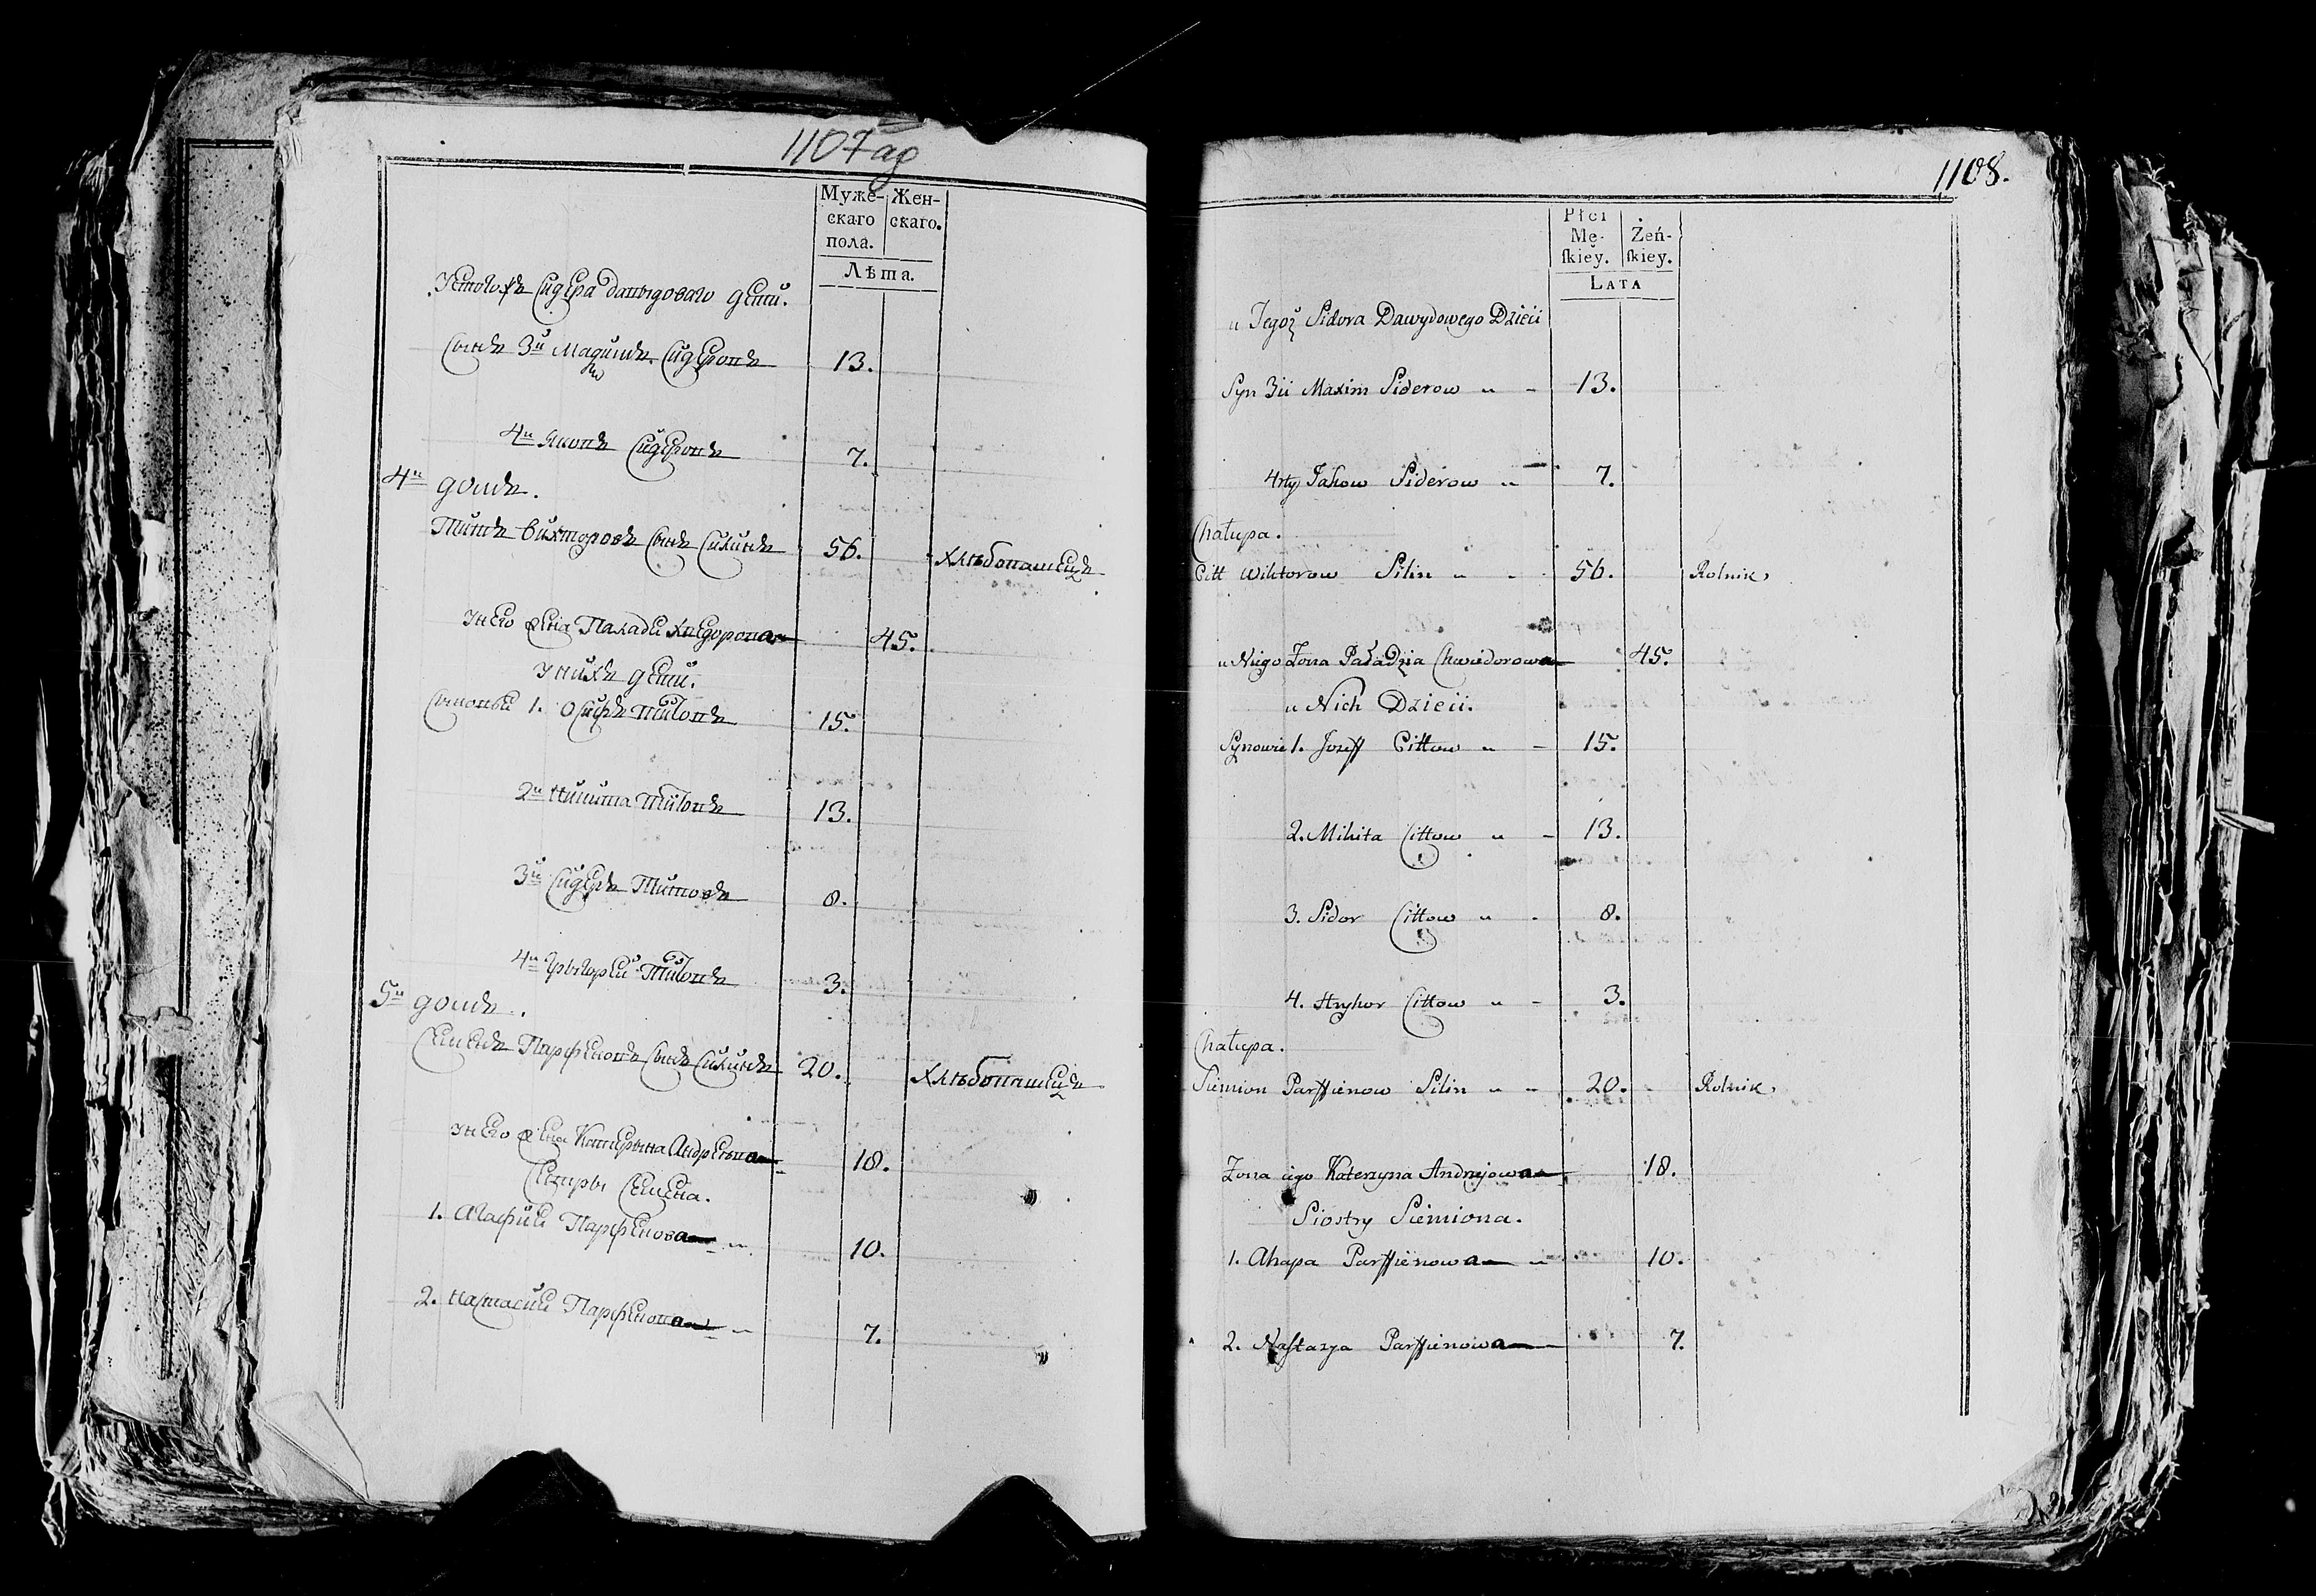 1107 аф
Муже- Жен-
скаго скаго.
пола.
Лѣта.
Утогожъ Сидера давыдоваго дети.
Сынъ 3й Мадимъ Сидеровъ 13.
4й Яковъ Сидеровъ 7.
4й домъ.
Титъ Викторовъ Сынъ Силинъ 56. Хлѣбопашецъ
Унего жена Палади Хведорова 45.
Унихъ дети.
Сыновьи 1. Осифъ Титовъ 15.
2й Никита Титовъ 13.
3й Сидеръ Титовъ 8.
4й Грыгорей Титовъ 3.
5й домъ.
Семенъ Парфеновъ Сынъ Силинъ 20. Хлѣбопашецъ
Унего жена Катерына Андреева 18.
Сестры Семена.
1. Агафия Парфенова 10.
2. Настасия Парфенова 7.
1108.
Płci
Mę- Żeń-
ſkiey. ſkiey.
LATA
u Jegoż Sidora Dawydowego Dzieci
Syn 3ii Maxim Siderow 13.
4rty Jakow Siderow 7.
Chałupa.
Citt Wiktorow Silin 56. Rolnik
u Niego Żona Paładzia Chwiedorowa 45.
u Nich Dzieci.
Synowie 1. Joseff Cittow 15.
2. Mikita Cittow 13.
3. Sidor Cittow 8.
4. Hryhor Cittow 3.
Chałupa.
Siemion Parffienow Silin 20. Rolnik
Żona iego Katerzyna Andrejowa 18.
Siostry Siemiona.
1. Ahapa Parffienowa 10.
2. Naſtazya Parffienowa 7.